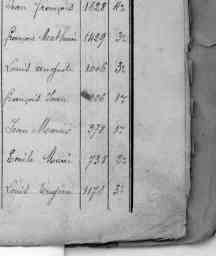 Jean François 1628
François Mathieu 1429 32
Louis auguste 1006 32
François Jean 906 12
Jean Marius 378 12
Emile Marie 738 22
Louis Eugène 1171 32